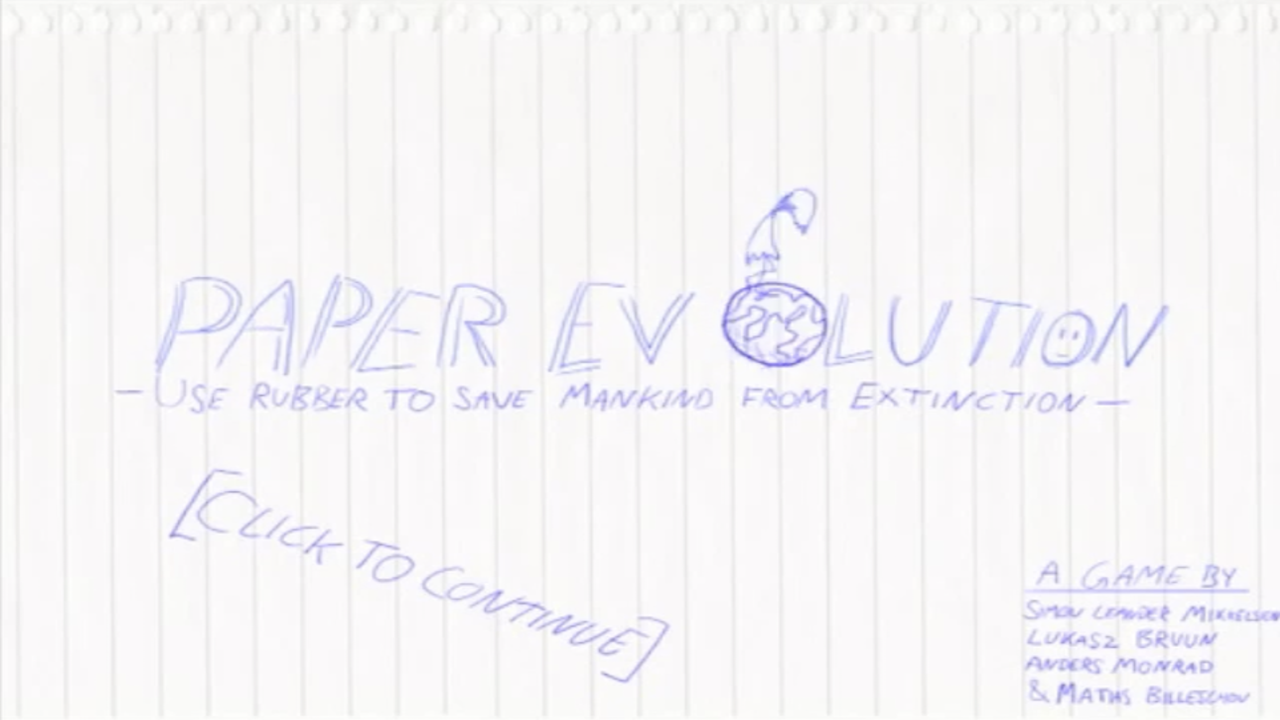 PAPER EVOLUTION
— USE RUBBER TO SAVE MANKIND FROM EXTINCTION —
[CLICK TO CONTINUE]
A GAME BY
SIMON LEANDER MIKKELSEN
LUKASZ BRUUN
ANDERS MONRAD
& MATIAS